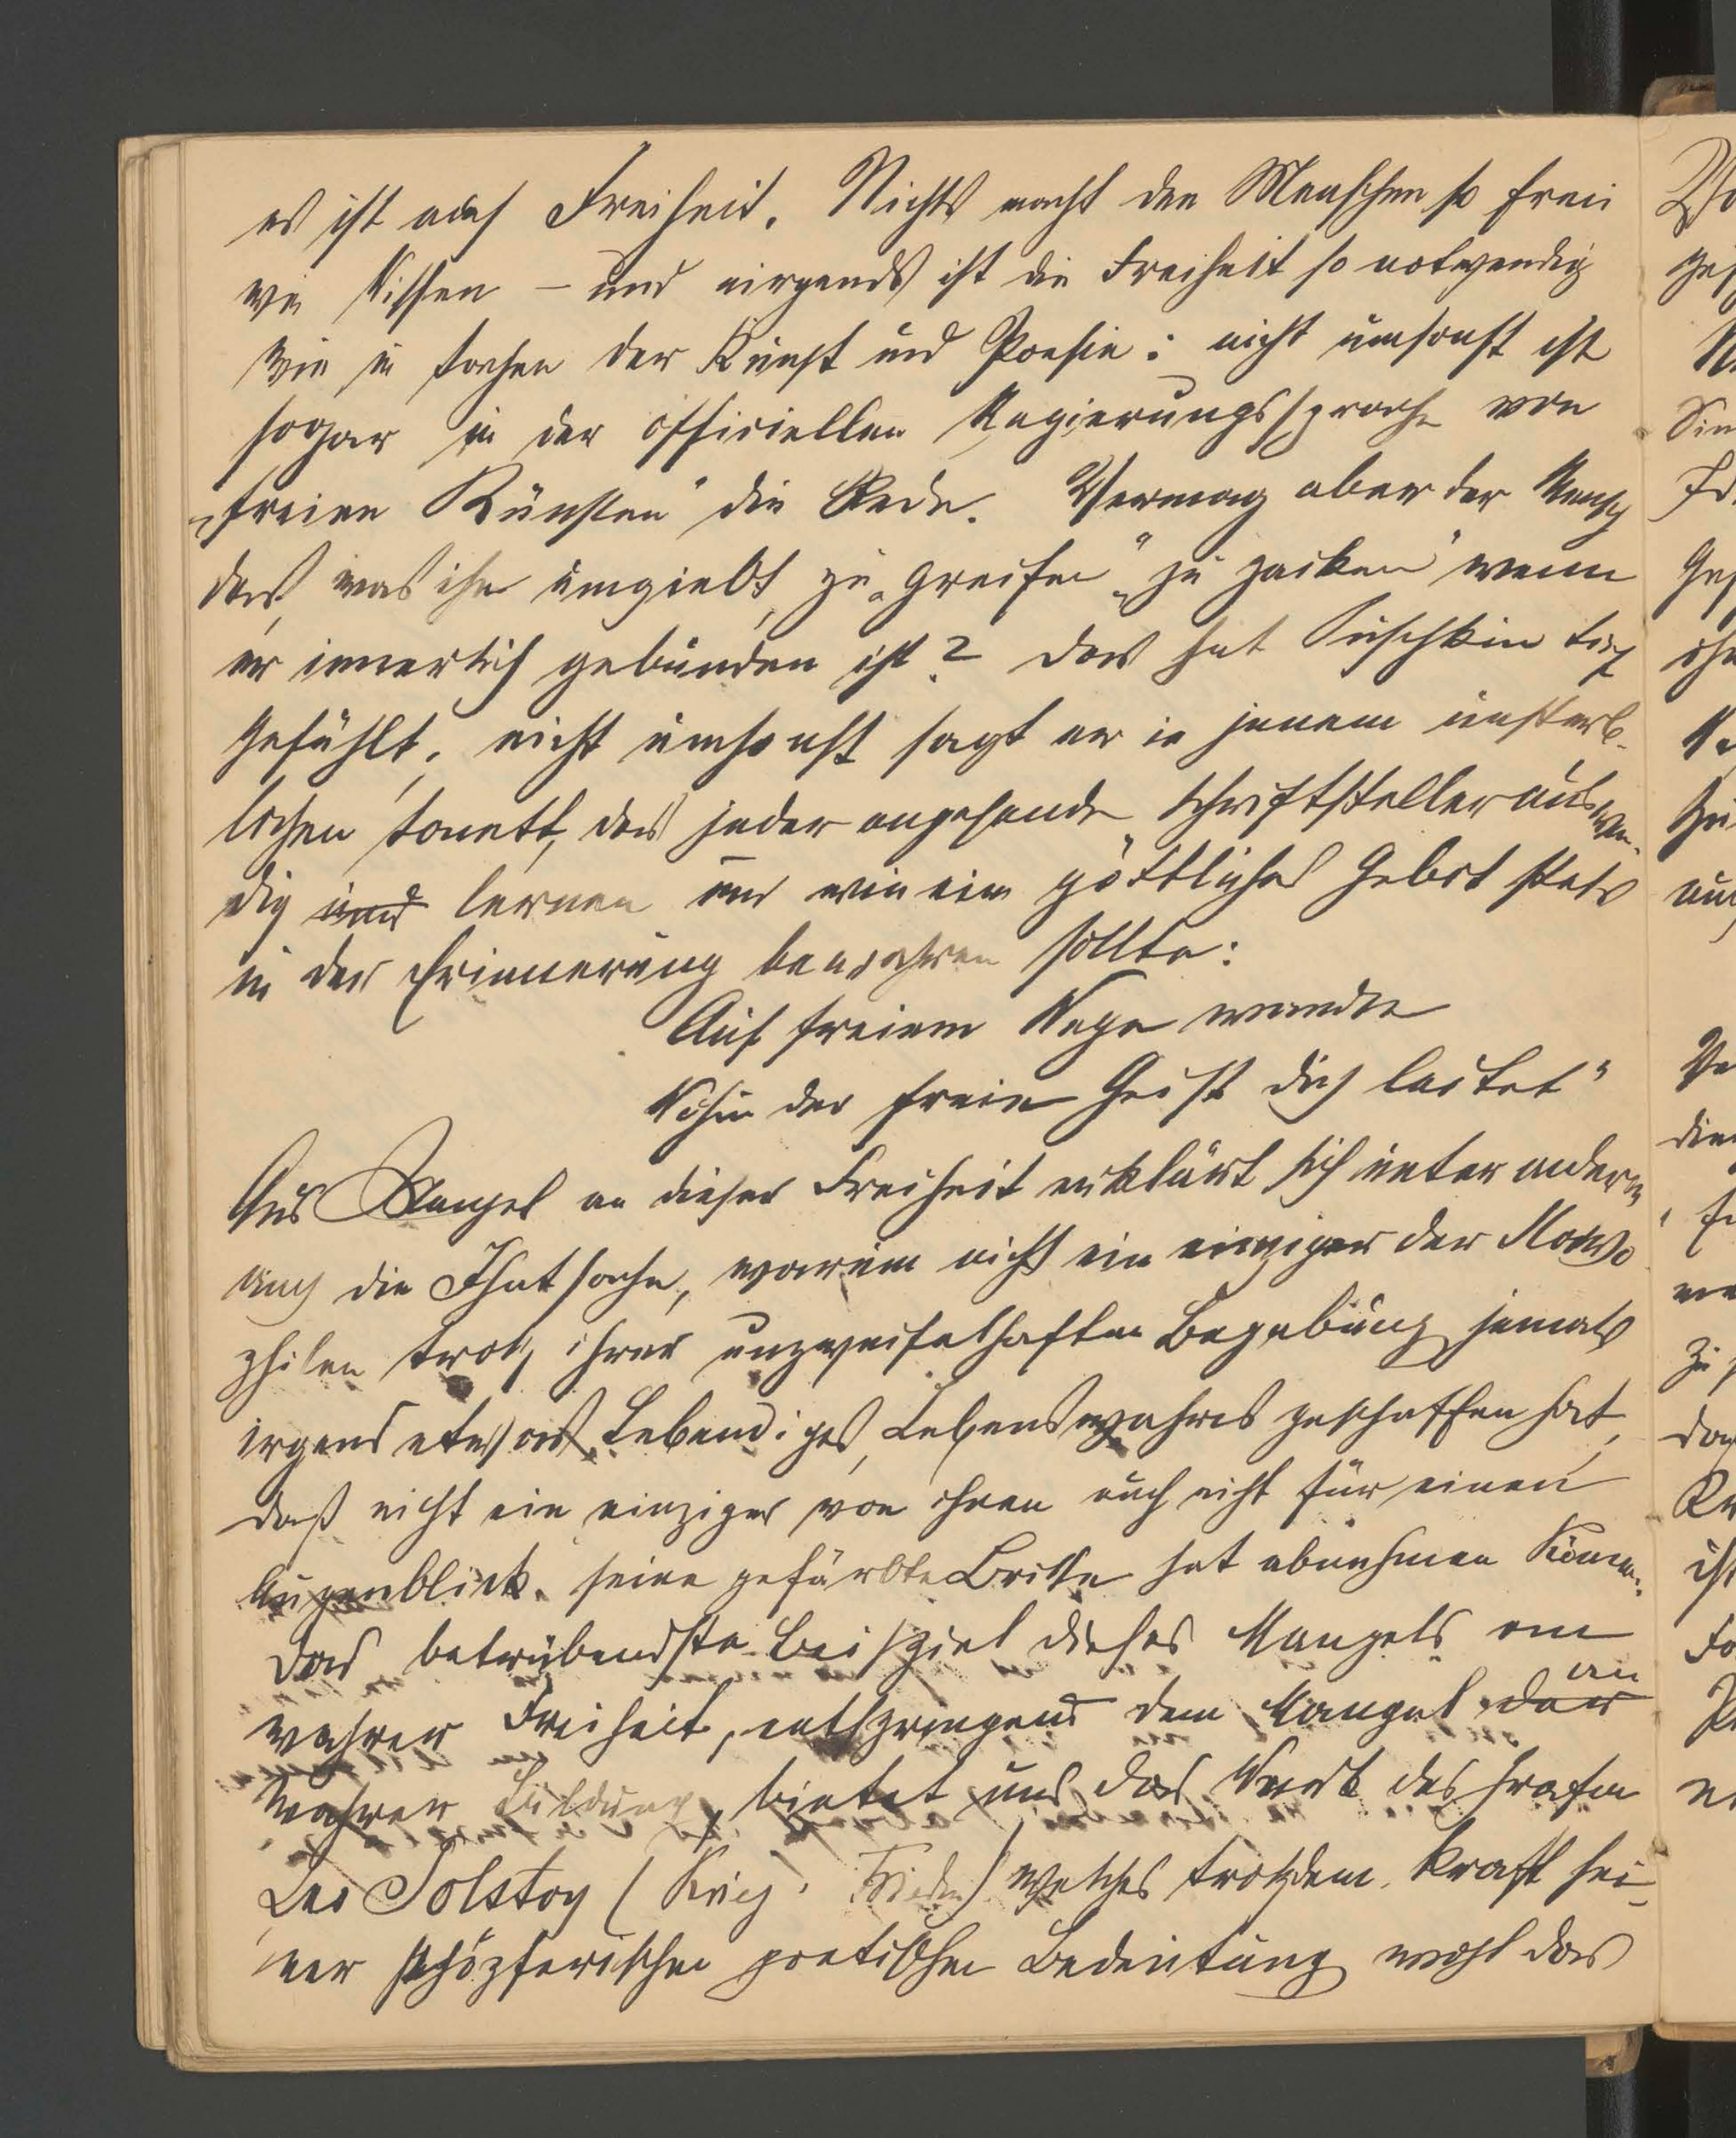 es ist auch Freiheit. Nichts macht den Menschen so frei
wie Wissen – und nirgends ist die Freiheit so notwendig
wie in Sachen der Kunst und Poesie: nicht umsonst ist
sogar in der officiellen Regierungssprache von
„freien Künsten" die Rede. Vermag aber der Mensch
das, was ihn umgiebt, zu „greifen" „zu packen" wenn
er innerlich gebunden ist? Das hat Puschkin tief
gefühlt; nicht umsonst sagt er in jenem unsterb-
lichen Sonett, das jeder angehende Schriftsteller auswen-
dig und lernen und wie ein göttliches Gebot stets
in der Erinnerung bewahren sollte:
Auf freiem Wege wandle
Wohin der freie Geist dich leitet"
Aus Mangel an dieser Freiheit erklärt sich unter anderm
auch die Thatsache, warum nicht ein einziger der Slawo
philen trotz ihrer unzweifelhaften Begabung jemals
irgend etwas Lebendiges, Lebenswahres geschaffen hat,
daß nicht ein einziger von ihnen auch nicht für einen
Augenblick seine gefärbte Brille hat abnehmen können.
Das betrübendste Beispiel dieses Mangels an
wahrer Freiheit, entspringend dem Mangel der an
wahrer Bildung, bietet uns das Werk des Grafen
Leo Tolstoy (Krieg Frieden) welches trotzdem kraft sei-
ner schöpferischen poetischen Bedeutung wohl das